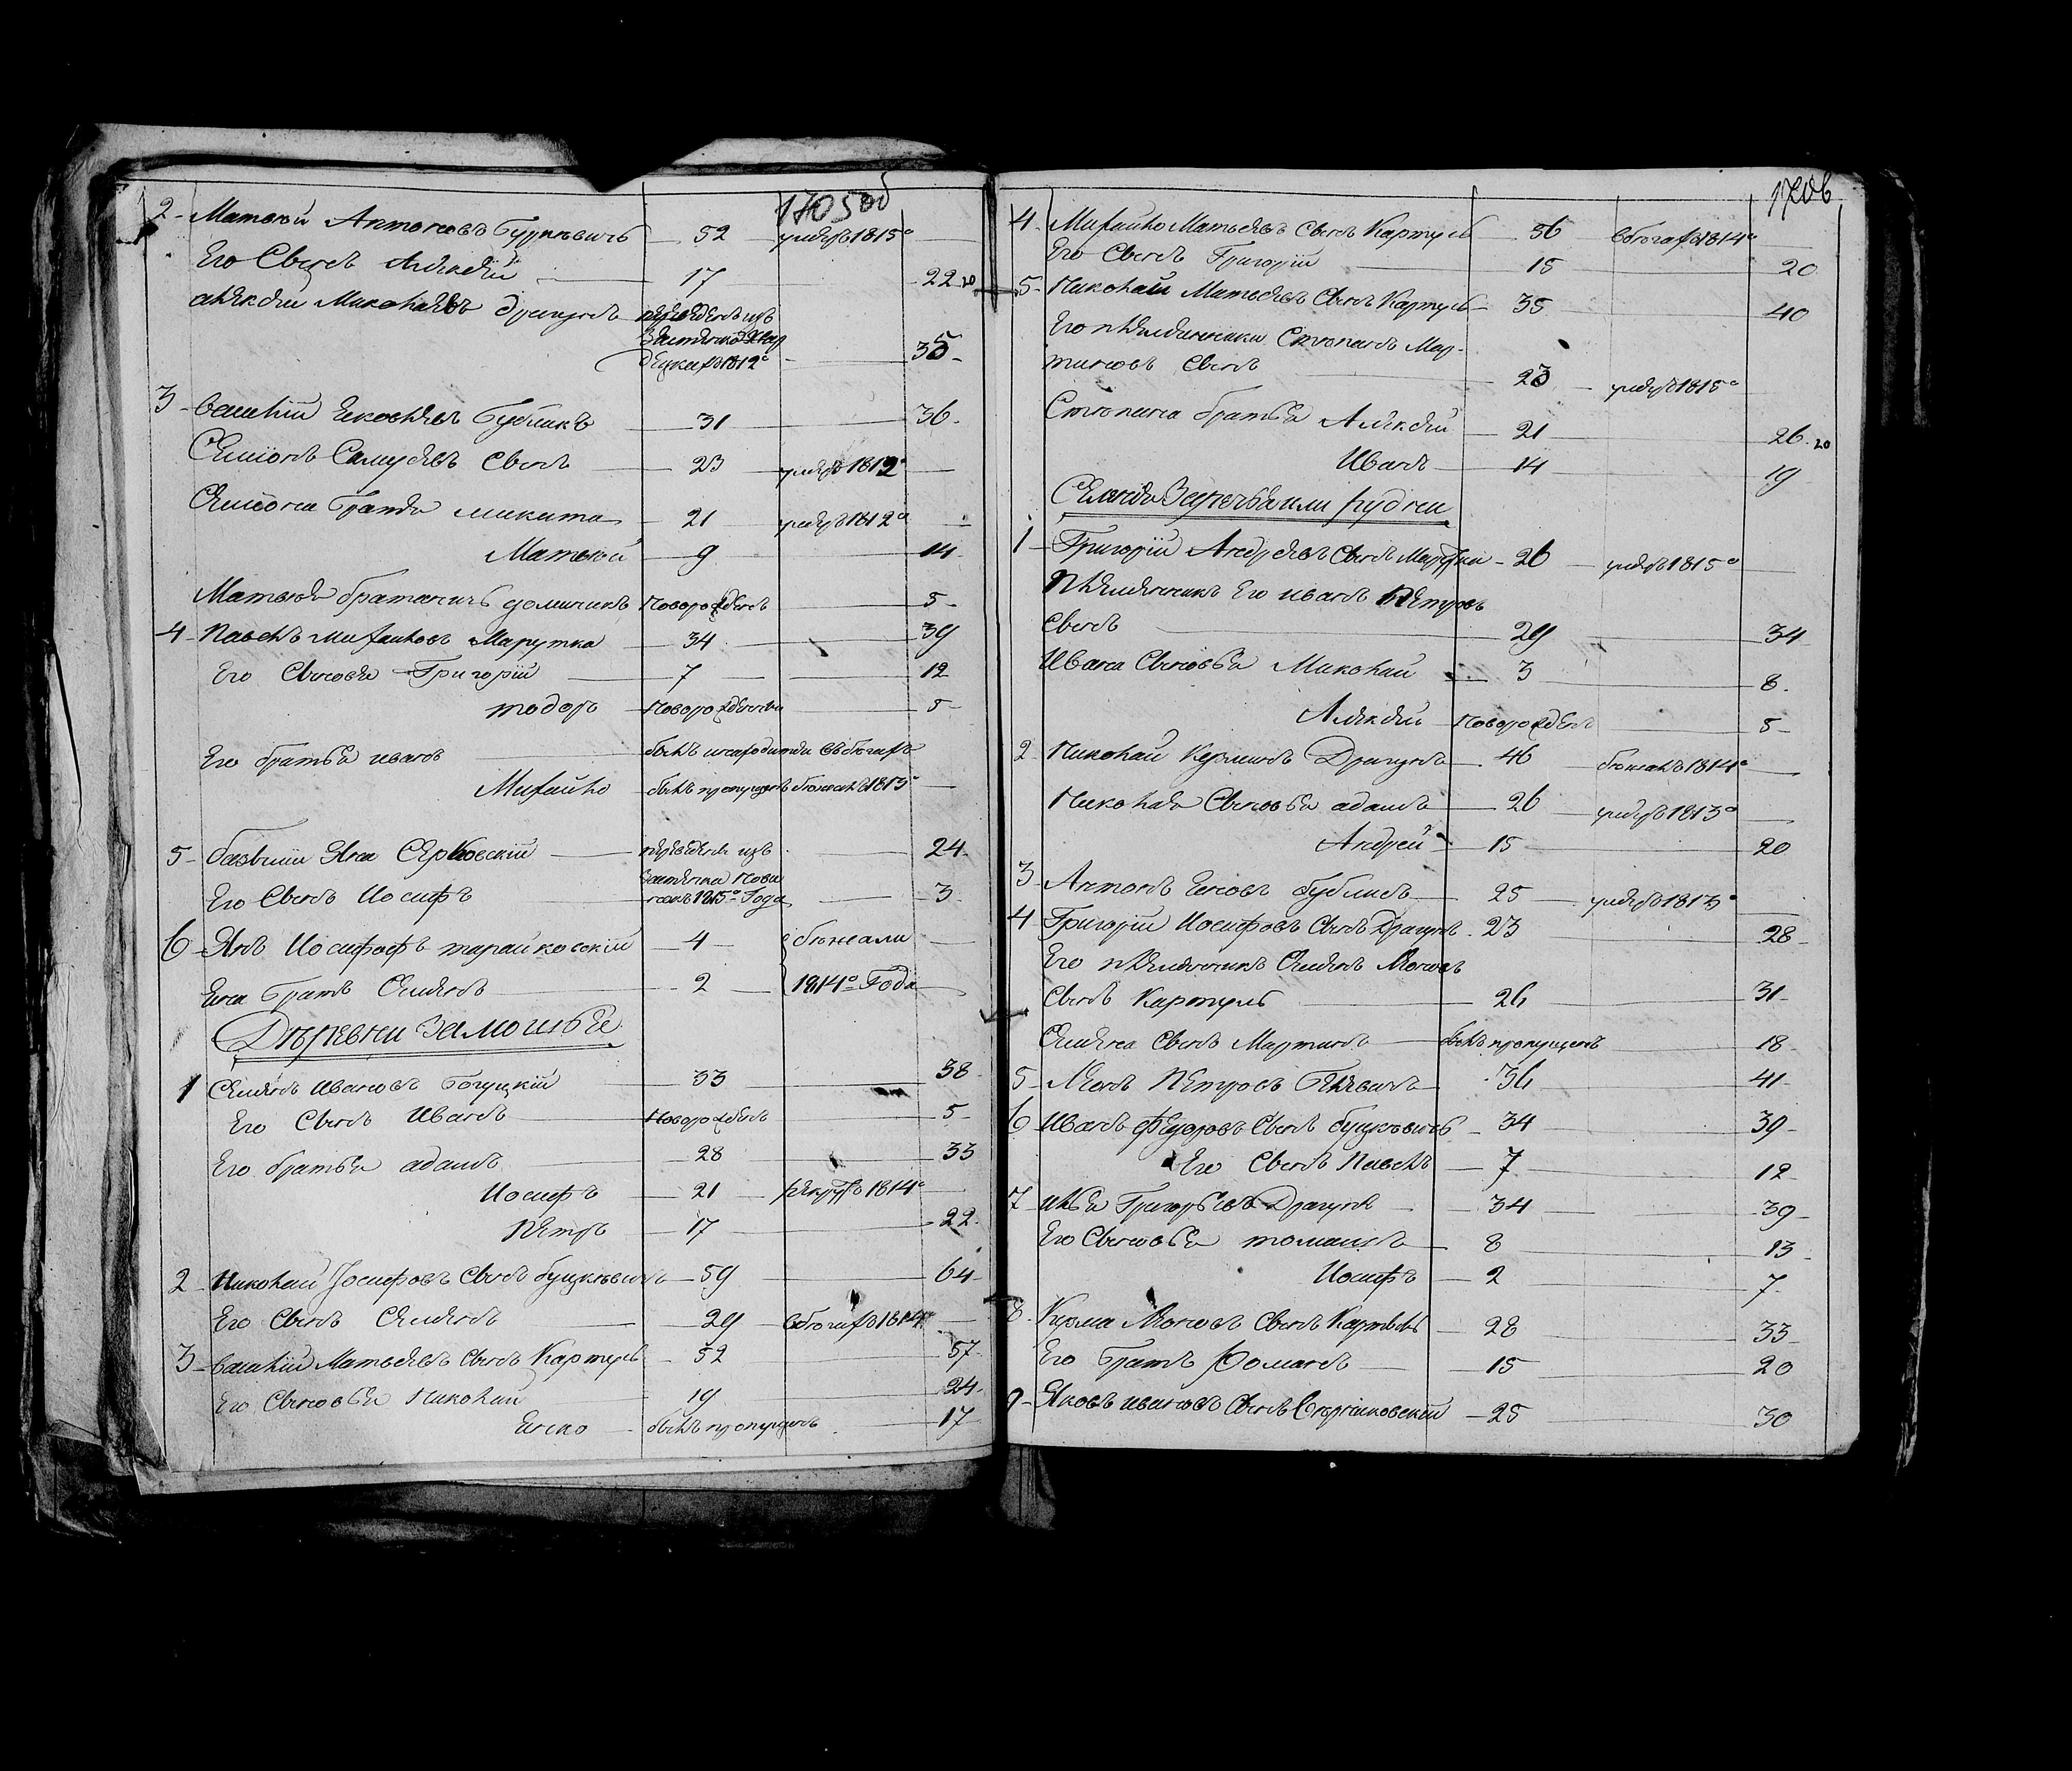 1705 об
2 - Матвей Антоновъ Буцкевичь — 52 — умеръ 1815º —
Его Сынъ Алексей — 17 — 22
алексей Миколаевъ драгунъ — переведенъ изъ
1812º — 35 -
3 - василий Яковлевъ Бубликъ — 31 — 36.
Семіонъ Самуевъ Сынъ — 23 — умеръ 1812º —
Семіона Братья микита — 21 — умеръ 1812º —
Матвей — 9 — 14
Матвея братаничъ доминикъ новорожденъ — 5 -
4 - павелъ михайловъ Марутка — 34 — 39
Его Сыновья Григорій — 7 — 12
тодоръ — новорожденны — 5 -
Его братья иванъ — былъ
Михайло — былъ пропущенъ бежалъ 1813º —
5 - Яна — переведенъ изъ — 24 -
застенка
Его Сынъ Іосифъ — 1815º Года — 3 -
6 - Янъ Іосифофъ тарайковскій — 4 — бежали —
Яна Братъ Семенъ — 2 — 1814º Года —
Деревни Замошья
1 Семенъ Ивановъ Богуцкій — 33 — 38 -
Его Сынъ Иванъ — новорожденъ — 5 -
Его братья адамъ — 28 — 33
Іосифъ — 21 — рекрут 1814º —
Петръ — 17 — 22.
2 - Николай Іосифовъ Сынъ буцкевичь — 59 — 64 -
Его Сынъ Семенъ — 29 — Вбегах 1814º —
3 - василий Матвеевъ Сынъ Картуль — 52 — 57 -
Его Сыновья николай — 19 — 24 -
Янко — былъ пропущенъ — 17 -
1706
4 - Михайло Матвеевъ Сынъ Картуль — 36 — Вбегах 1814º —
Его Сынъ Григорій — 15 — 20
5 - Николай Матвеевъ Сынъ Картуль — 35 — 40
Его племянники Степанъ Мар-
тиновъ Сынъ — 23 — умеръ 1815º
Степана братья Алексей — 21 — 26.
Иванъ — 14 — 19
Селенія Заречья или рудни
1 - Григорій Андреевъ Сынъ Марутка - 26 — умеръ 1815º —
Племянникъ Его иванъ Петровъ
Сынъ — 29 — 34
Ивана Сыновья Миколай — 3 — 8.
Алексей — новорожденъ — 5 -
2 Николай Драгунъ — 46 — бежалъ 1814º —
Николая Сыновья адамъ — 26 — умеръ 1813º —
Андрей — 15 — 20
3 - Антонъ Яновъ бубликъ — 25 — умеръ 1813º —
4 - Григорій Іосифовъ Сынъ Драгунъ - 23 — 28 -
Его племянникъ Семенъ Леоновъ
Сынъ Картуль — 26 — 31 -
Семена Сынъ Мартинъ — былъ пропущенъ — 18 -
5 - Леонъ Петровъ — 36 — 41 -
6 - Иванъ Федоровъ Сынъ буцкевичь — 34 — 39 -
Его Сынъ Павелъ — 7 — 12 -
7 - илья Григорьевъ Драгунъ — 34 — 39 -
Его Сыновья томашъ — 8 — 13 -
Іосифъ — 2 — 7 -
8 - Курма Леоновъ Сынъ Картель — 28 — 33 -
Его Братъ Романъ — 15 — 20
9 - Яковъ ивановъ Сынъ — 25 — 30